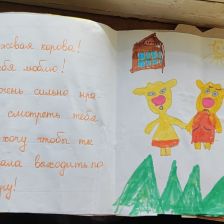 жевая корова!
бя люблю!
чень сильно нра
смотреть тебя
хочу чтобы ты
ала выходить по
ру!